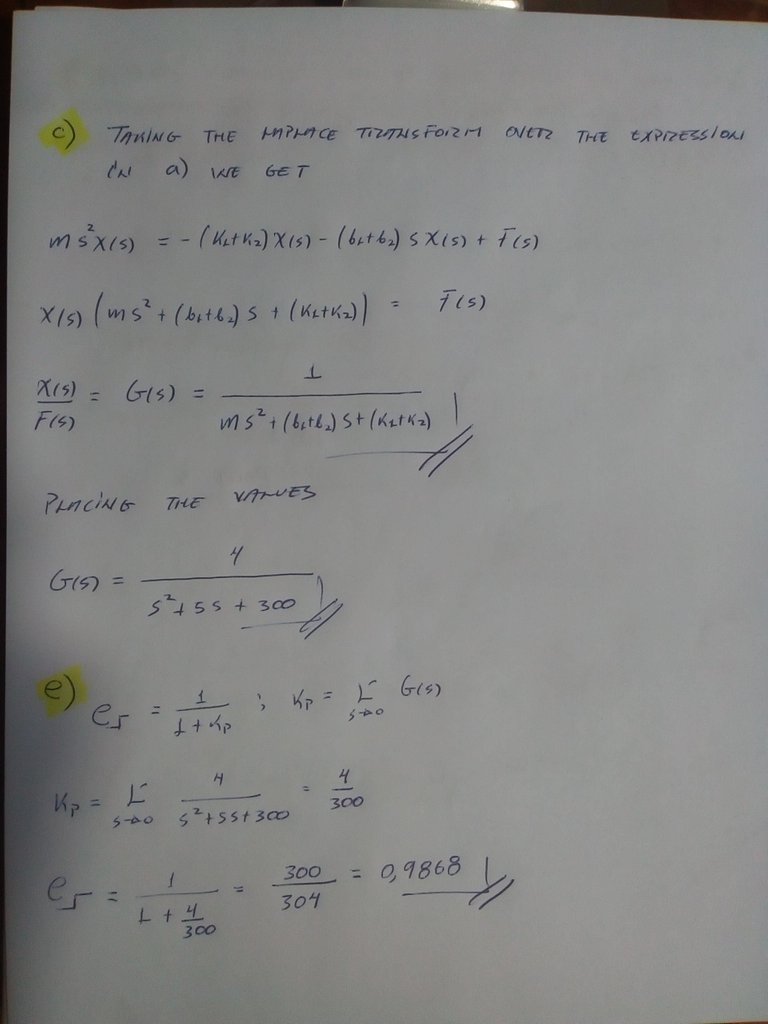 c) TAKING THE LAPLACE TRANSFORM OVER THE EXPRESSION
IN a) WE GET
ms²X(s) = -(K1+K2)X(s) - (b1+b2) s X(s) + F(s)
X(s) (ms² + (b1+b2) s + (K1+K2)) = F(s)
X(s)/F(s) = G(s) = 1/(ms² + (b1+b2) s + (K1+K2))
PLACING THE VALUES
G(s) = 4/(s² + 5s + 300)
e) e = 1/(1 + Kp) ; Kp = L s→0 G(s)
Kp = L s→0 4/(s² + 5s + 300) = 4/300
e = 1/(1 + 4/300) = 300/304 = 0,9868